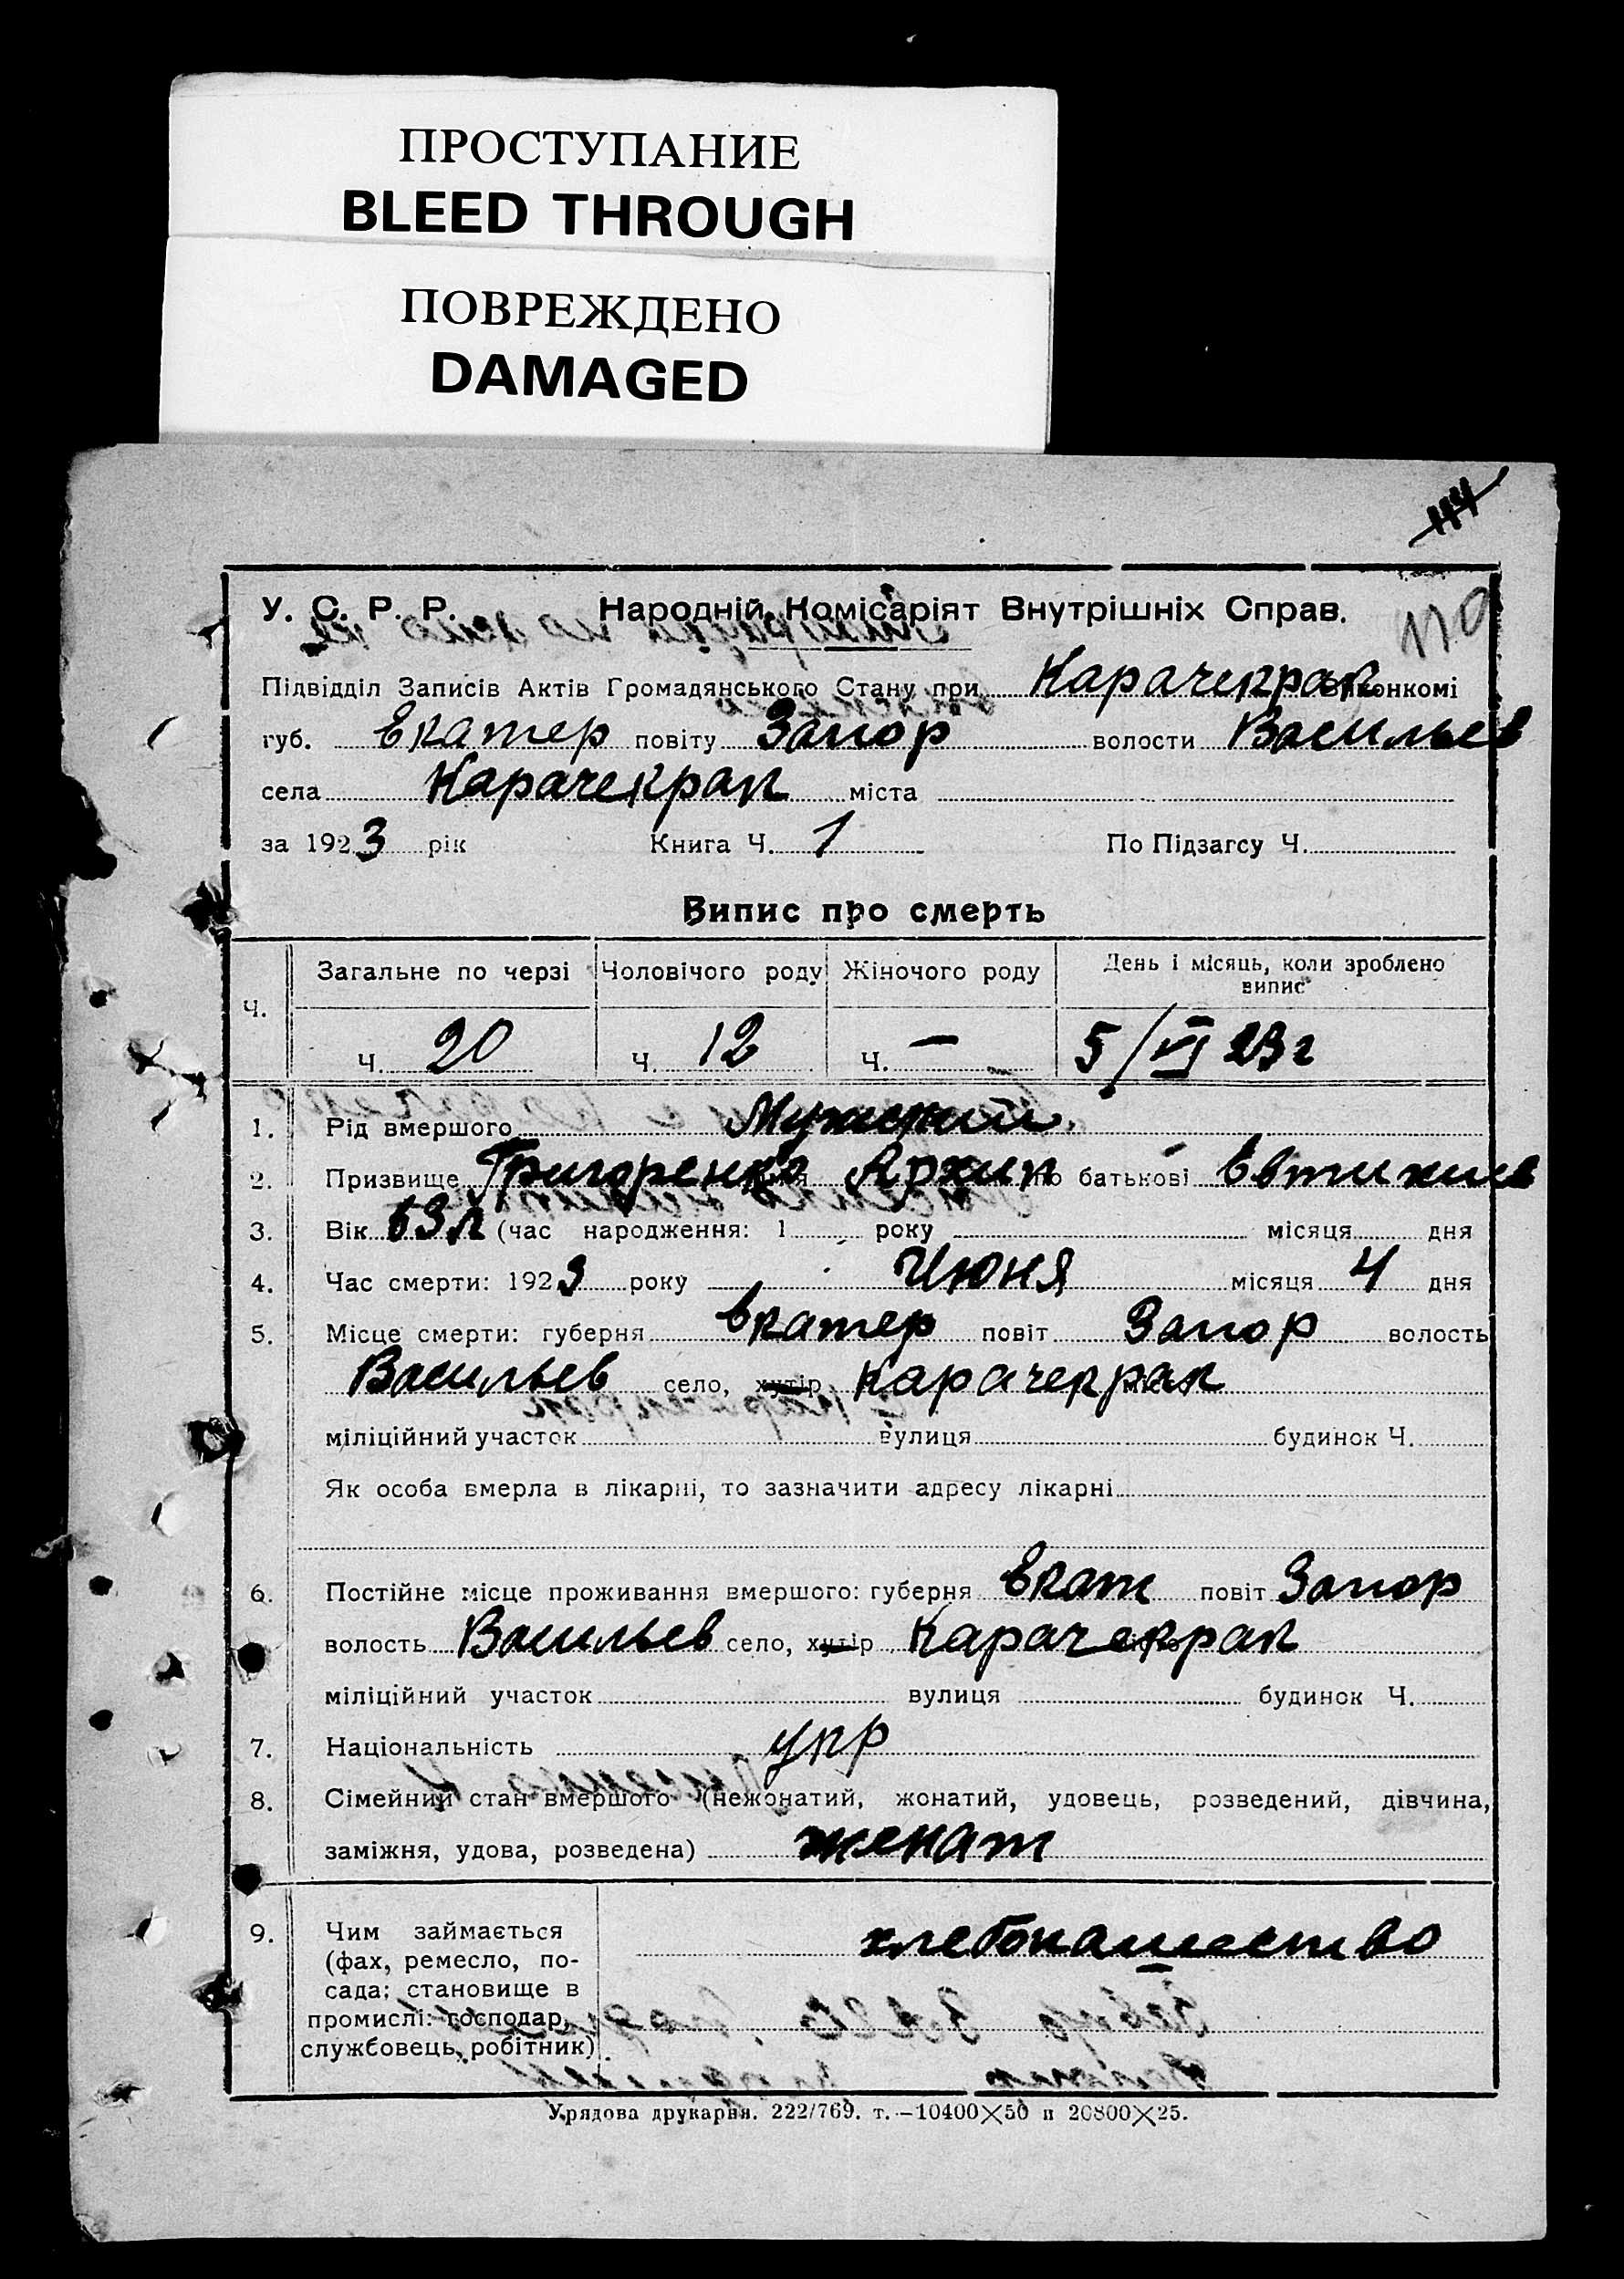 ПРОСТУПАНИЕ
BLEED THROUGH
ПОВРЕЖДЕНО
DAMAGED
144
110
У. С. Р. Р. Народній Комісаріят Внутрішніх Справ.
Підвідділ Записів Актів Громадянського Стану при Карачекрак Виконкомі
губ. Екатер повіту Запор волости Васильев
села Карачекрак міста
за 1923 рік Книга Ч. 1 По Підзагсу Ч.
Випис про смерть
Ч. Загальне по черзі Чоловічого роду Жіночого роду День і місяць, коли зроблено випис
Ч. 20 Ч. 12 Ч. — 5/VI 23 г
1. Рід вмершого Мужский
2. Призвище Григоренко Архип по батькові Евтихиев
3. Вік 53 л (час народження: 1 року місяця дня
4. Час смерти: 1923 року Июня місяця 4 дня
5. Місце смерти: губерня Екатер повіт Запор волость
Васильев село, хутір Карачекрак
міліційний участок вулиця будинок Ч.
Як особа вмерла в лікарні, то зазначити адресу лікарні
6. Постійне місце проживання вмершого: губерня Екат повіт Запор
волость Васильев село, хутір Карачекрак
міліційний участок вулиця будинок Ч.
7. Національність укр
8. Сімейний стан вмершого (нежонатий, жонатий, удовець, розведений, дівчина,
заміжня, удова, розведена) женат
9. Чим займається хлебопашество
(фах, ремесло, по-
сада; становище в
промислі: господар,
службовець, робітник)
Урядова друкарня. 222/769. т.—10400×50 п 20800×25.